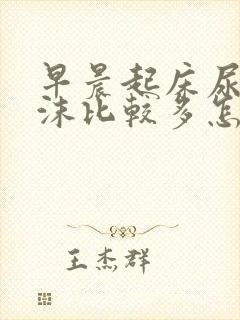 早晨起床尿
沫比较多怎
王杰群